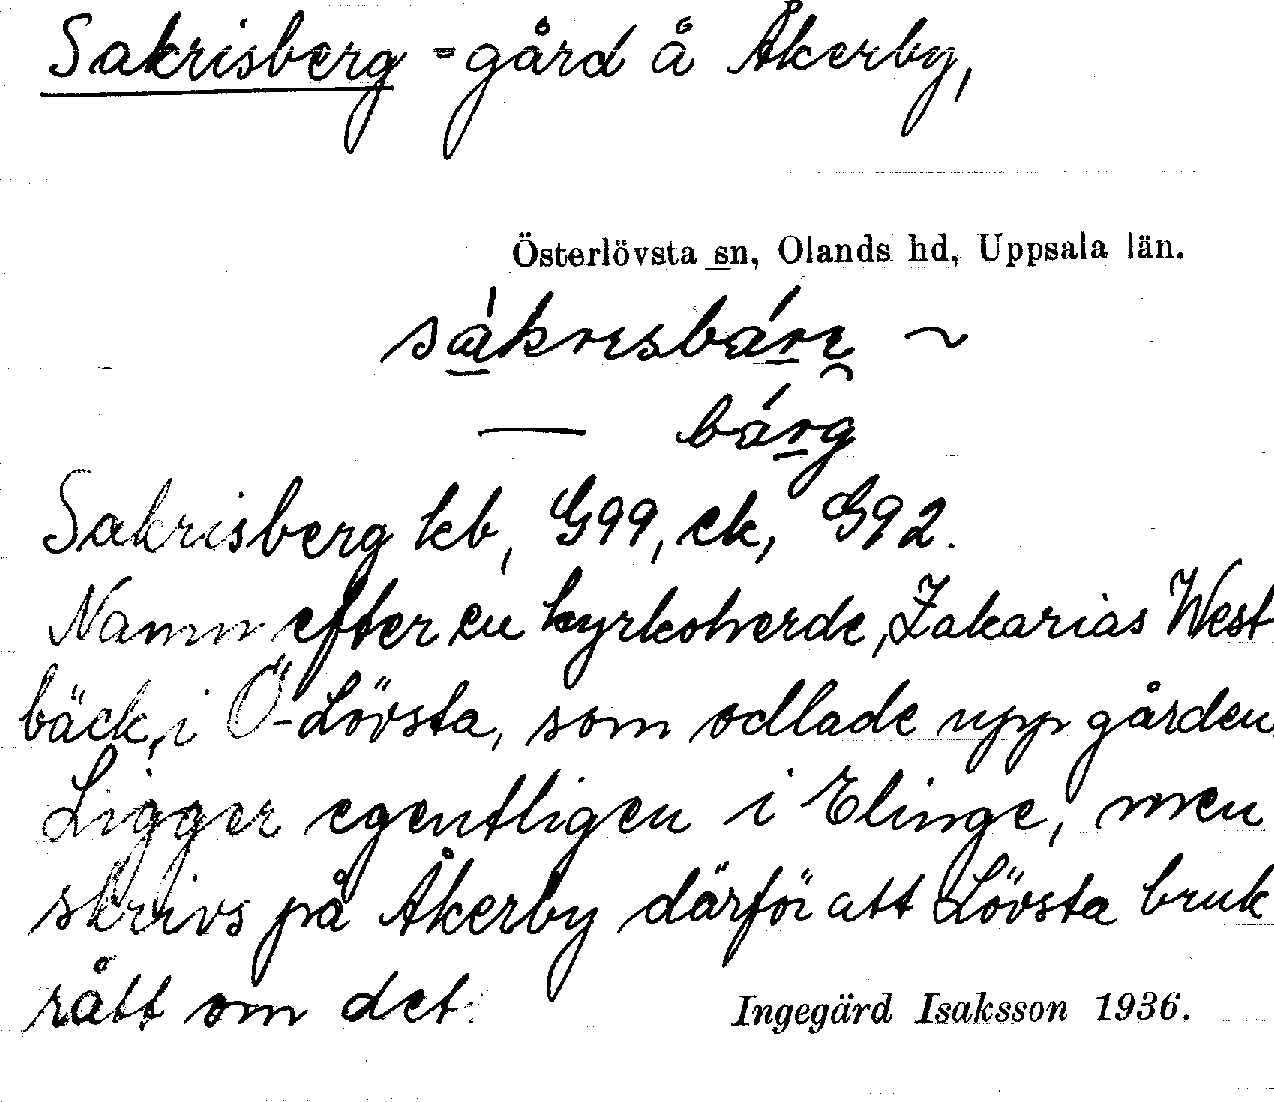 Sakrisberg = gård å Åkerby,
Österlövsta sn, Olands hd, Uppsala län.
sákrisbári ~
— bárg
Sakrisberg kb, G99, ek, G92.
Namn efter en kyrkoherde, Zakarias West
bäck, i Ö-Lövsta, som odlade upp gården
Ligger egentligen i Elinge, men
skrivs på Åkerby därför att Lövsta bruk
rått om det.
Ingegärd Isaksson 1936.